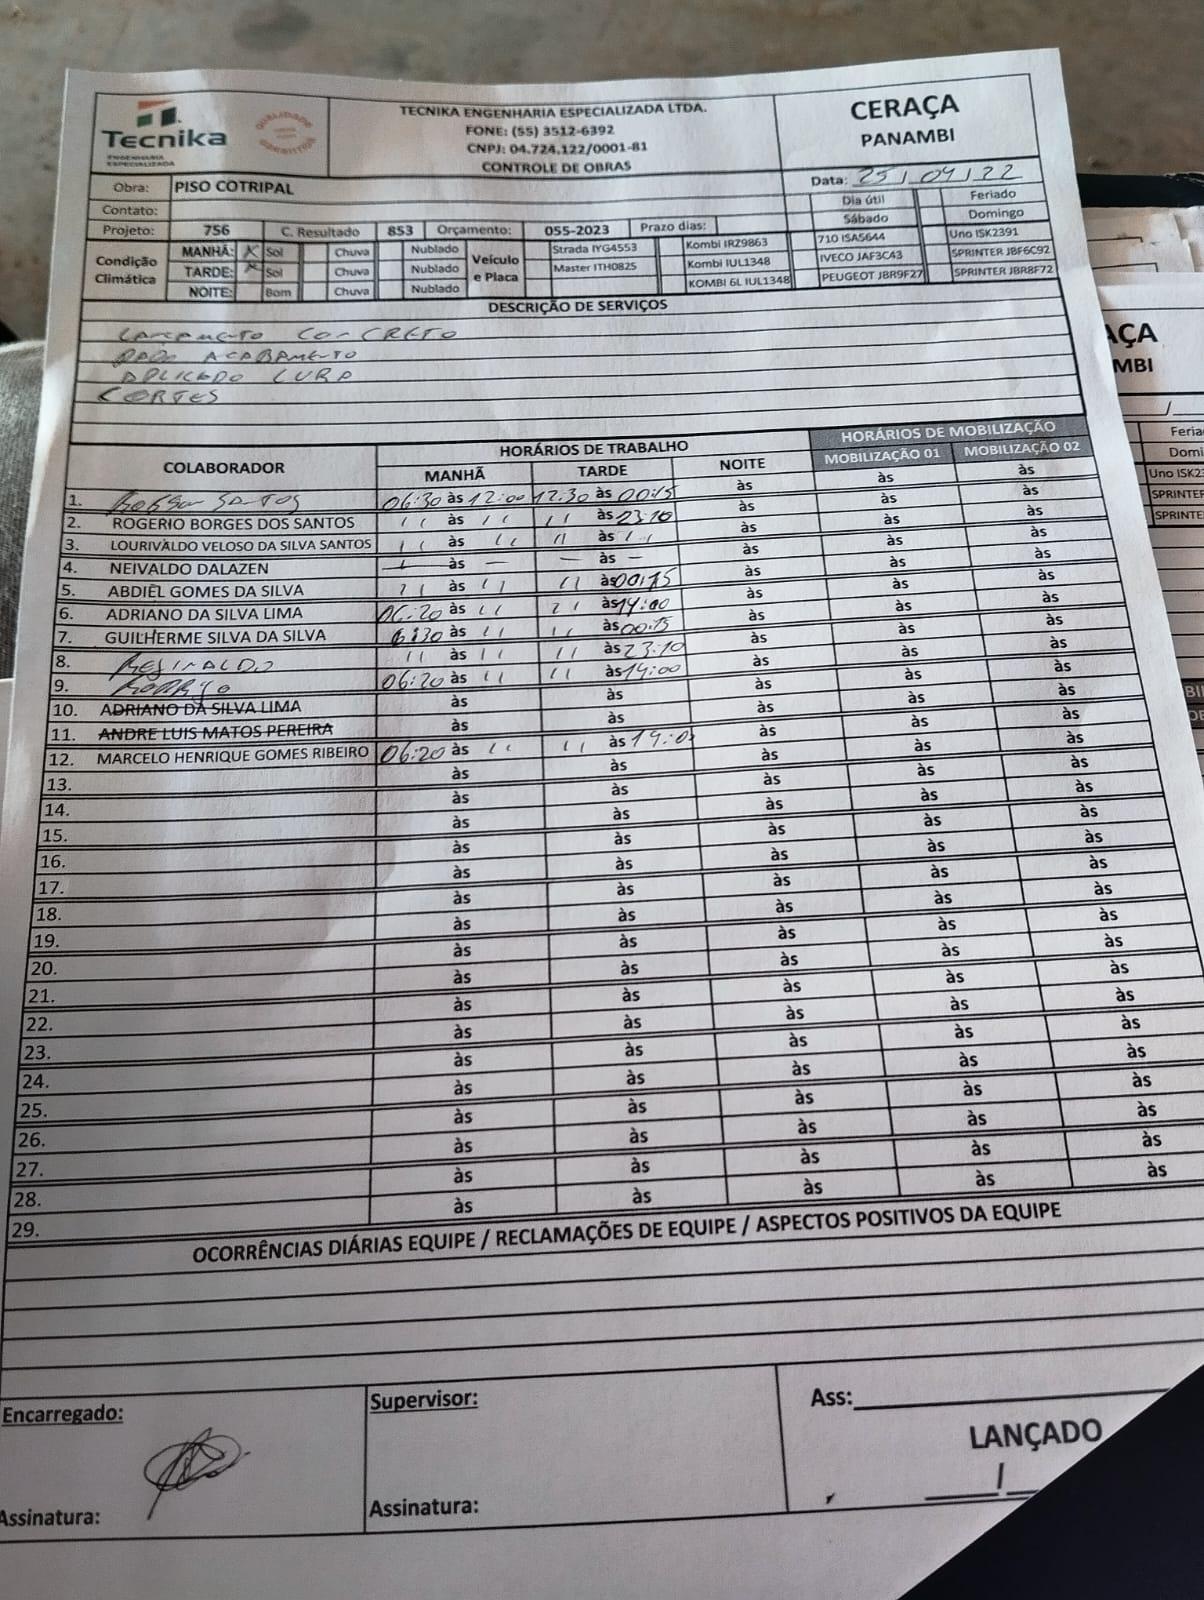 Tecnika
ENGENHARIA
ESPECIALIZADA
QUALIDADE
TECNIKA ENGENHARIA ESPECIALIZADA LTDA.
FONE: (55) 3512-6392
CNPJ: 04.724.122/0001-81
CONTROLE DE OBRAS
CERAÇA
PANAMBI
Obra: PISO COTRIPAL
Data: 25/04/22
Contato:
Dia útil Feriado
Sábado Domingo
Projeto: 756 C. Resultado 853 Orçamento: 055-2023 Prazo dias:
Condição Climática
MANHÃ: X Sol Chuva Nublado
TARDE: X Sol Chuva Nublado
NOITE: Bom Chuva Nublado
Veículo e Placa
Strada IYG4553 Kombi IRZ9863 710 ISA5644 Uno ISK2391
Master ITH0825 Kombi IUL1348 IVECO JAF3C43 SPRINTER JBF6C92
KOMBI 6L IUL1348 PEUGEOT JBR9F27 SPRINTER JBR8F72
DESCRIÇÃO DE SERVIÇOS
LANÇAMENTO CONCRETO
DADO ACABAMENTO
APLICADO CURA
CORTES
COLABORADOR HORÁRIOS DE TRABALHO HORÁRIOS DE MOBILIZAÇÃO
MANHÃ TARDE NOITE MOBILIZAÇÃO 01 MOBILIZAÇÃO 02
1. SANTOS 06:30 às 12:00 12:30 às 00:15 às às às
2. ROGERIO BORGES DOS SANTOS 11 às 11 11 às 23:10 às às às
3. LOURIVALDO VELOSO DA SILVA SANTOS 11 às 11 11 às 11 às às às
4. NEIVALDO DALAZEN — às — — às — às às às
5. ABDIEL GOMES DA SILVA 11 às 11 11 às 00:15 às às às
6. ADRIANO DA SILVA LIMA 06:20 às 11 11 às 14:00 às às às
7. GUILHERME SILVA DA SILVA 6:30 às 11 11 às 00:15 às às às
8. REGINALDO 11 às 11 11 às 23:10 às às às
9. RODRIGO 06:20 às 11 11 às 14:00 às às às
10. ADRIANO DA SILVA LIMA às às às às às
11. ANDRE LUIS MATOS PEREIRA às às às às às
12. MARCELO HENRIQUE GOMES RIBEIRO 06:20 às 11 11 às 14:00 às às às
13. às às às às às
14. às às às às às
15. às às às às às
16. às às às às às
17. às às às às às
18. às às às às às
19. às às às às às
20. às às às às às
21. às às às às às
22. às às às às às
23. às às às às às
24. às às às às às
25. às às às às às
26. às às às às às
27. às às às às às
28. às às às às às
29. às às às às às
OCORRÊNCIAS DIÁRIAS EQUIPE / RECLAMAÇÕES DE EQUIPE / ASPECTOS POSITIVOS DA EQUIPE
Encarregado:
Assinatura:
Supervisor:
Assinatura:
Ass:
LANÇADO
/
AÇA
MBI
/
Feria
Domi
Uno ISK23
SPRINTER
SPRINTE